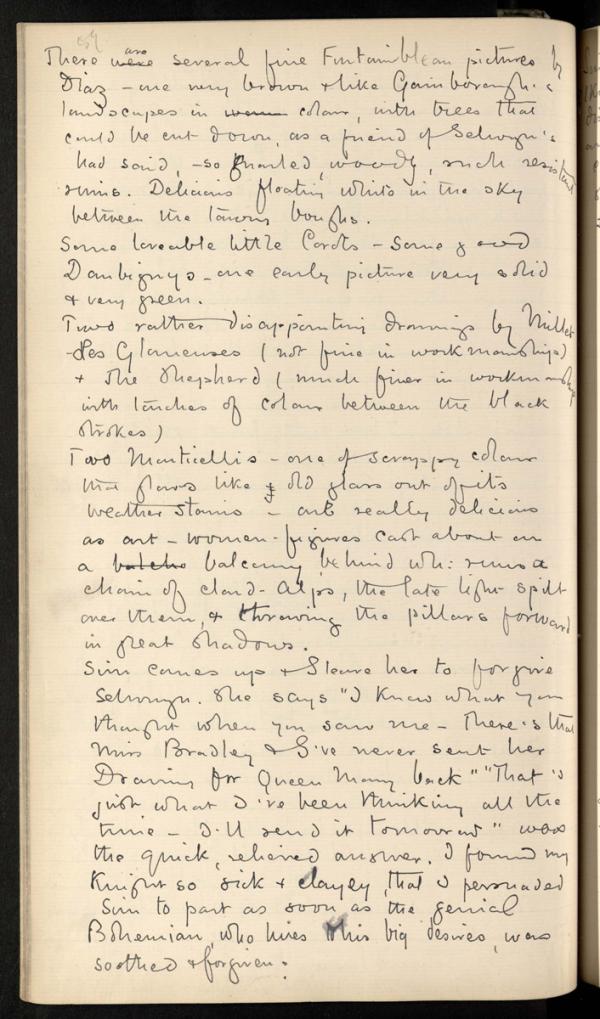 There are several fine Fontainblean pictures by
Diaz – one very brown & like Gainborough's
landscapes in colour, with trees that
could be cut down, as a friend of Selwyn's
had said, – so gnarled, woody, such resistant
rims. Delicious floating white in the sky
between the tawny boughs.
Some loveable little Corots – Some good
Daubignys – one early picture very solid
& very green.
Two rather disappointing drawings by Millet
– Les Glaneuses (not fine in workmanship)
& The Shepherd (much finer in workmanship
with touches of colour between the black
strokes)
Two Monticellis – one of scrappy colour
that glows like old glass out of its
weather stains – one really delicious
as art – women-figures cast about on
a balcony, behind wh: runs a
chain of cloud-Alps, the late light spilt
over them, & throwing the pillars forward
in great shadows.
Sim comes up & I leave her to forgive
Selwyn. She says "I know what you
thought when you saw me – There's that
Miss Bradley & I've never sent her
Drawing for Queen Mary back" "That's
just what I've been thinking all the
time – I'll send it tomorrow" was
the quick, relieved answer. I found my
Knight so sick & clayey, that I persuaded
Sim to part as soon as the genial
Bohemian, who hives his big desires, was
soothed & forgiven.